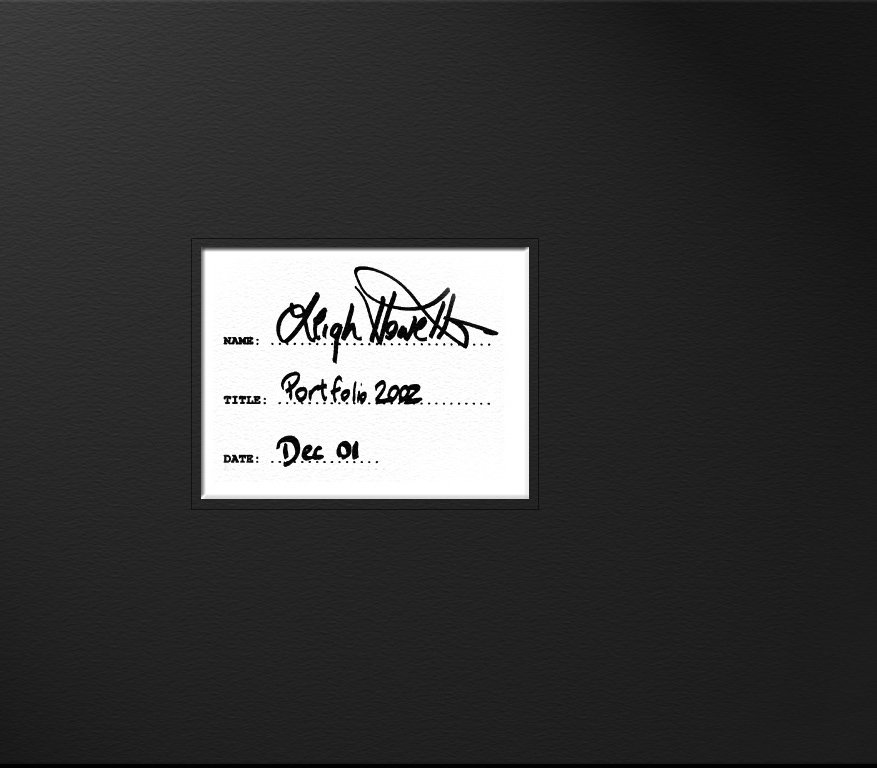 NAME: Leigh Howett
TITLE: Portfolio 2002
DATE: Dec 01